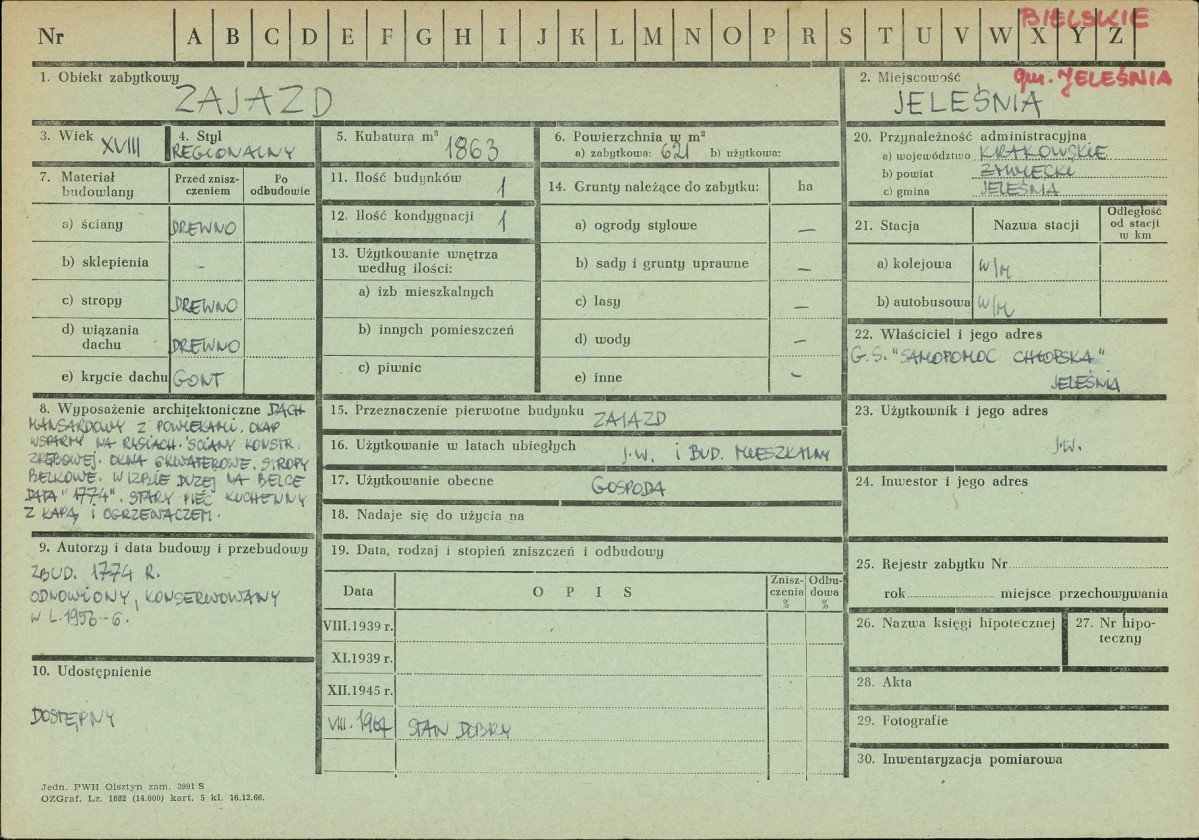 Nr A B C D E F G H I J K L M N O P R S T U V W X Y Z
BIELSKIE
gm. JELEŚNIA
1. Obiekt zabytkowy
ZAJAZD
2. Miejscowość
JELEŚNIA
3. Wiek XVIII
4. Styl
REGIONALNY
5. Kubatura m³ 1863
6. Powierzchnia w m²
a) zabytkowa: 621 b) użytkowa:
7. Materiał budowlany
Przed zniszczeniem
Po odbudowie
a) ściany DREWNO
b) sklepienia –
c) stropy DREWNO
d) wiązania dachu DREWNO
e) krycie dachu GONT
8. Wyposażenie architektoniczne DACH
MANSARDOWY Z POWIEKAMI. OKAP
WSPARTY NA RYSIACH. ŚCIANY KONSTR.
ZRĘBOWEJ. OKNA 6KWATEROWE. STROPY
BELKOWE. W IZBIE DUŻEJ NA BELCE
DATA "1774". STARY PIEC KUCHENNY
Z KAPĄ I OGRZEWACZEM.
9. Autorzy i data budowy i przebudowy
ZBUD. 1774 R.
ODNOWIONY, KONSERWOWANY
W L. 1956-6.
10. Udostępnienie
DOSTĘPNY
11. Ilość budynków 1
12. Ilość kondygnacji 1
13. Użytkowanie wnętrza
według ilości:
a) izb mieszkalnych
b) innych pomieszczeń
c) piwnic
14. Grunty należące do zabytku: ha
a) ogrody stylowe –
b) sady i grunty uprawne –
c) lasy –
d) wody –
e) inne –
15. Przeznaczenie pierwotne budynku ZAJAZD
16. Użytkowanie w latach ubiegłych J.W. I BUD. MIESZKALNY
17. Użytkowanie obecne GOSPODA
18. Nadaje się do użycia na
19. Data, rodzaj i stopień zniszczeń i odbudowy
Data
O P I S
Zniszczenia %
Odbudowa %
VIII.1939 r.
XI.1939 r.
XII.1945 r.
VIII.1967 STAN DOBRY
20. Przynależność administracyjna
a) województwo KRAKOWSKIE
b) powiat ŻYWIECKI
c) gmina JELEŚNIA
21. Stacja
Nazwa stacji
Odległość
od stacji
w km
a) kolejowa W/M
b) autobusowa W/M
22. Właściciel i jego adres
G.S. "SAMOPOMOC CHŁOPSKA"
JELEŚNIA
23. Użytkownik i jego adres
J.W.
24. Inwestor i jego adres
25. Rejestr zabytku Nr
rok miejsce przechowywania
26. Nazwa księgi hipotecznej
27. Nr hipoteczny
28. Akta
29. Fotografie
30. Inwentaryzacja pomiarowa
Jedn. PWH Olsztyn zam. 3991 S
OZGraf. Lz. 1882 (14.000) kart. 5 kl. 16.12.66.